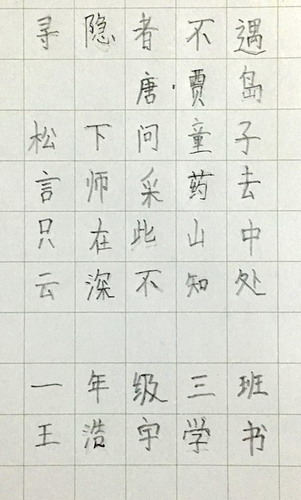 寻隐者不遇
唐·賈岛
松下问童子
言师采药去
只在此山中
云深不知处
一年级三班
王浩宇学书